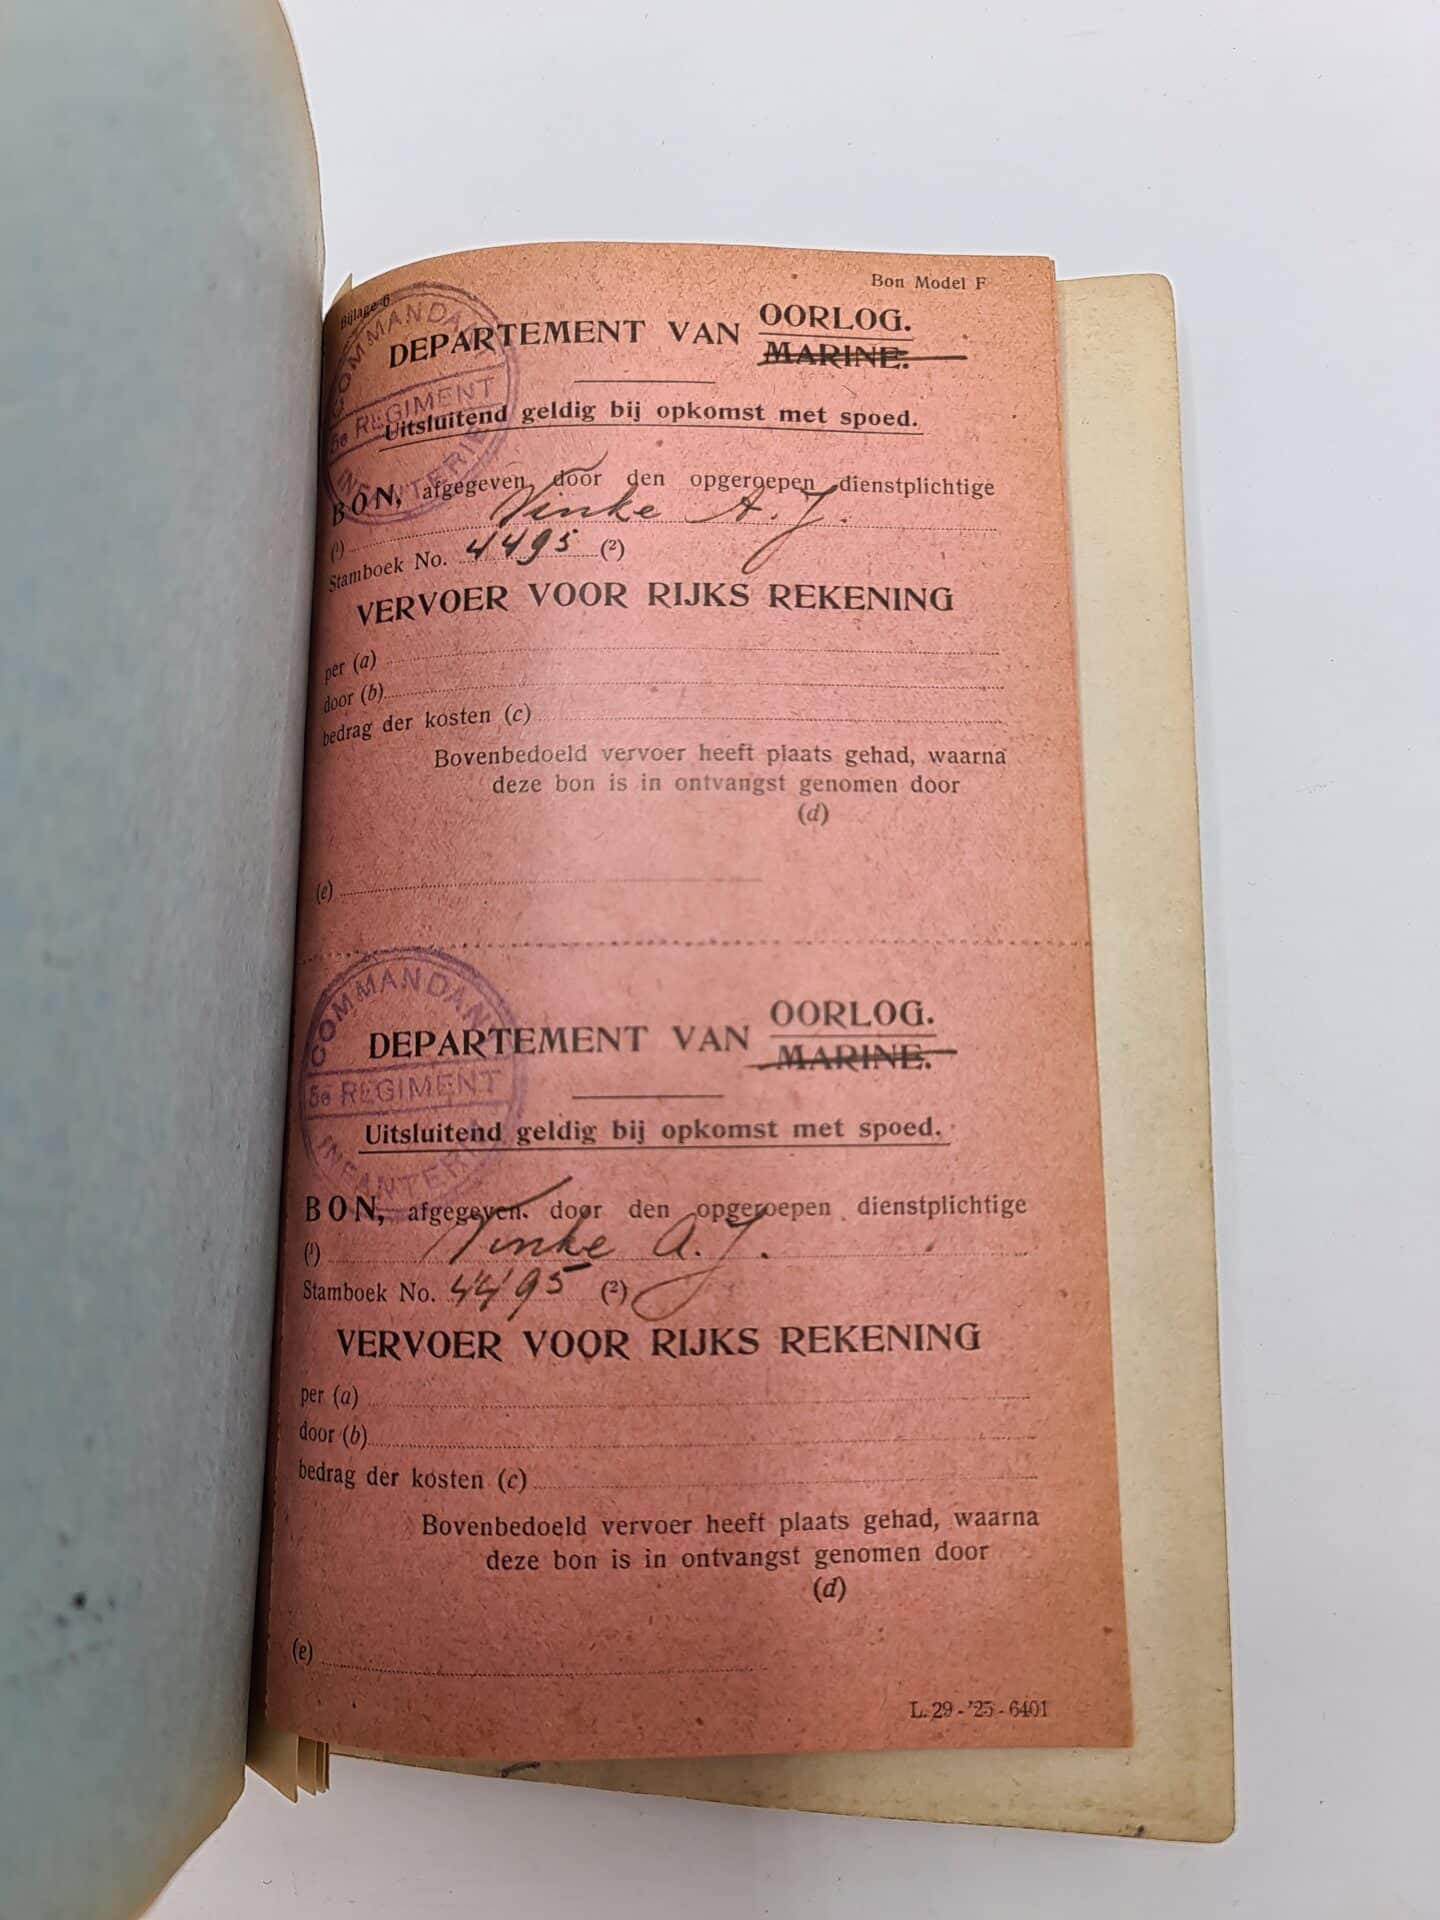 Bijlage 6
Bon Model F
COMMANDANT
5e REGIMENT
INFANTERIE
DEPARTEMENT VAN OORLOG.
MARINE.
Uitsluitend geldig bij opkomst met spoed.
BON, afgegeven door den opgeroepen dienstplichtige
(1) Vinke A. J.
Stamboek No. 4495 (2)
VERVOER VOOR RIJKS REKENING
per (a)
door (b)
bedrag der kosten (c)
Bovenbedoeld vervoer heeft plaats gehad, waarna
deze bon is in ontvangst genomen door
(d)
(e)
COMMANDANT
5e REGIMENT
INFANTERIE
DEPARTEMENT VAN OORLOG.
MARINE.
Uitsluitend geldig bij opkomst met spoed.
BON, afgegeven door den opgeroepen dienstplichtige
(1) Vinke A. J.
Stamboek No. 4495 (2)
VERVOER VOOR RIJKS REKENING
per (a)
door (b)
bedrag der kosten (c)
Bovenbedoeld vervoer heeft plaats gehad, waarna
deze bon is in ontvangst genomen door
(d)
(e)
L. 29 - '25 - 6401